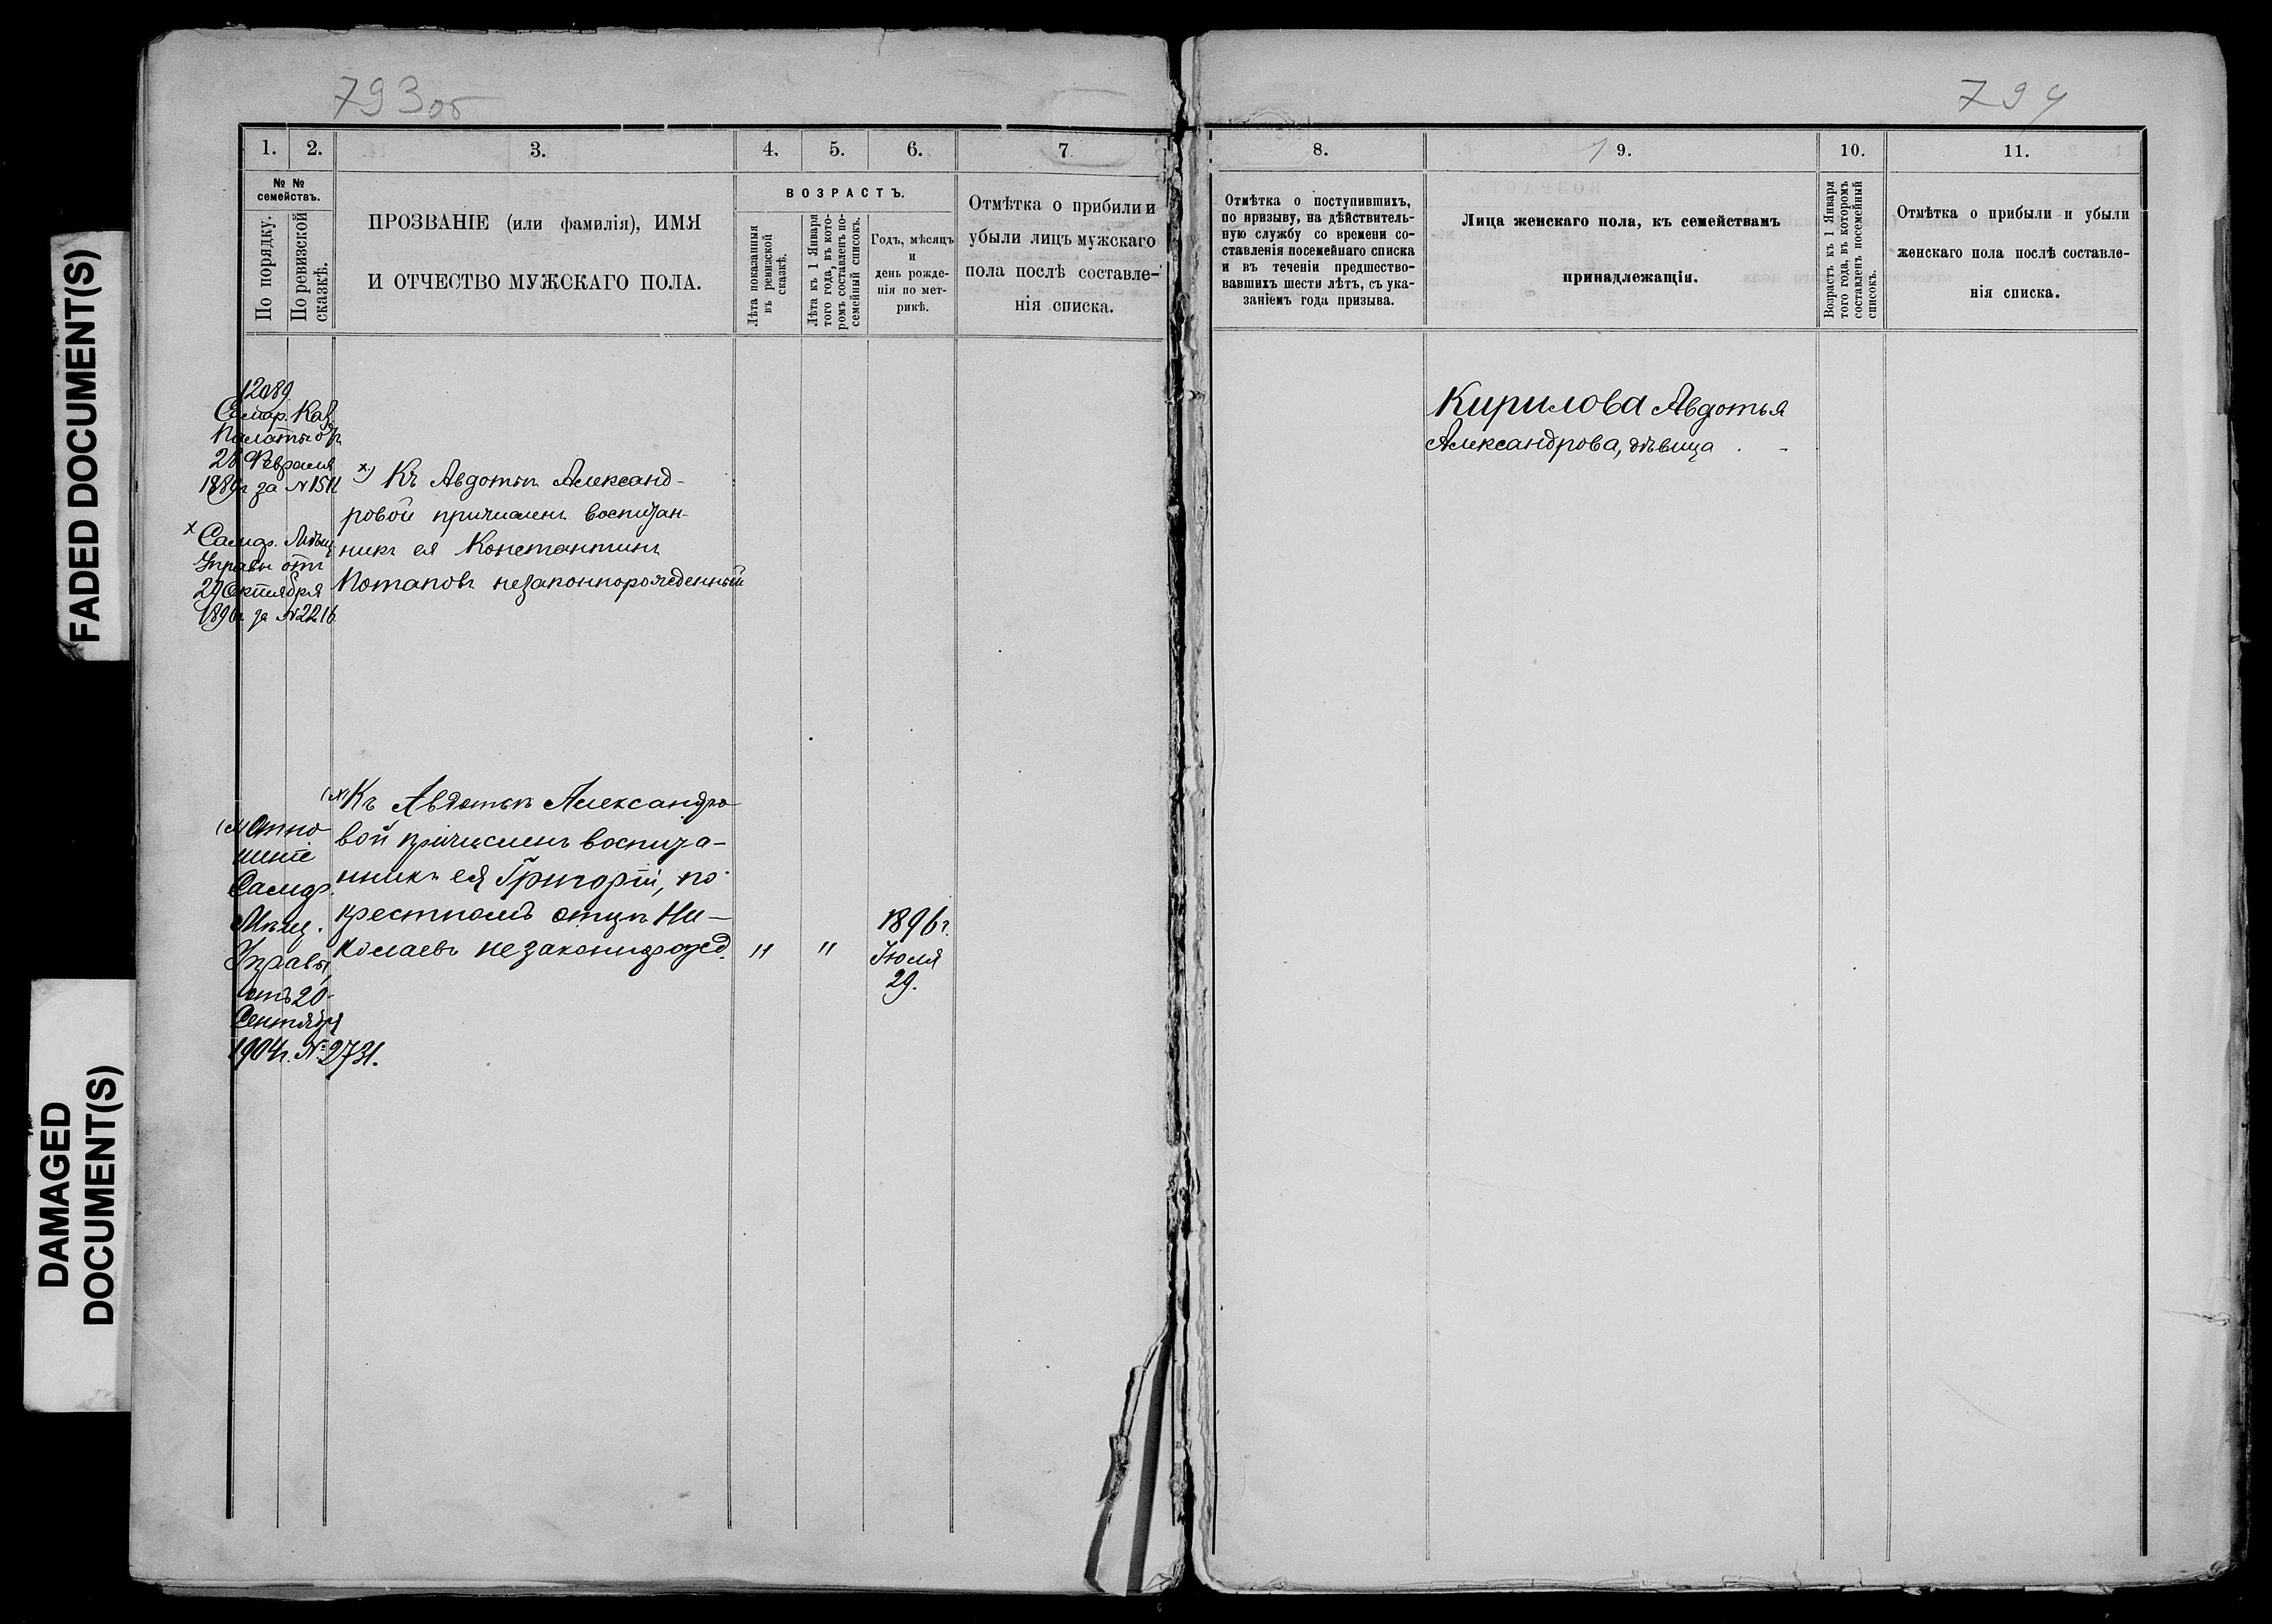 FADED DOCUMENT(S)
DAMAGED
DOCUMENT(S)
793об
1.
2.
3.
4.
5.
6.
7
№ №
семействъ.
По порядку.
По ревизской
сказкѣ.
ПРОЗВАНІЕ (или фамилія), ИМЯ
И ОТЧЕСТВО МУЖСКАГО ПОЛА.
ВОЗРАСТЪ.
Лѣта показанныя
въ ревизской
сказкѣ.
Лѣта къ 1 Января
того года, въ кото-
ромъ составленъ по-
семейный списокъ.
Годъ, мѣсяцъ
и
день рожде-
нія по мет-
рикѣ.
Отмѣтка о прибыли и
убыли лицъ мужскаго
пола послѣ составле-
нія списка.
12089
Самар. Каз.
Палаты от
28 Февраля
1889г за №1511
х Самар. Мѣщ
Управы отъ
29 Октября
1896г. за №2216
х) Къ Авдотьѣ Александ-
ровой причисленъ воспитан-
никъ ея Константинъ
Потаповъ незаконнорожденный
(х) Отно
шеніе
Самар.
Мѣщ.
Управы
отъ 20
Сентября
1904г. №2731.
(х) Къ Авдотьѣ Александро
вой причисленъ воспита-
нникъ ея Григорій, по
крестномъ отцѣ Ни-
колаевъ незаконнорожд.
"
"
1896г.
Іюля
29.
794
8.
9.
10.
11.
Отмѣтка о поступившихъ,
по призыву, на дѣйствитель-
ную службу со времени со-
ставленія посемейнаго списка
и въ теченіи предшество-
вавшихъ шести лѣтъ, съ ука-
заніемъ года призыва.
Лица женскаго пола, къ семействамъ
принадлежащія.
Возрастъ къ 1 Января
того года, въ которомъ
составленъ посемейный
списокъ.
Отмѣтка о прибыли и убыли
женскаго пола послѣ составле-
нія списка.
Кирилова Авдотья
Александрова, дѣвица